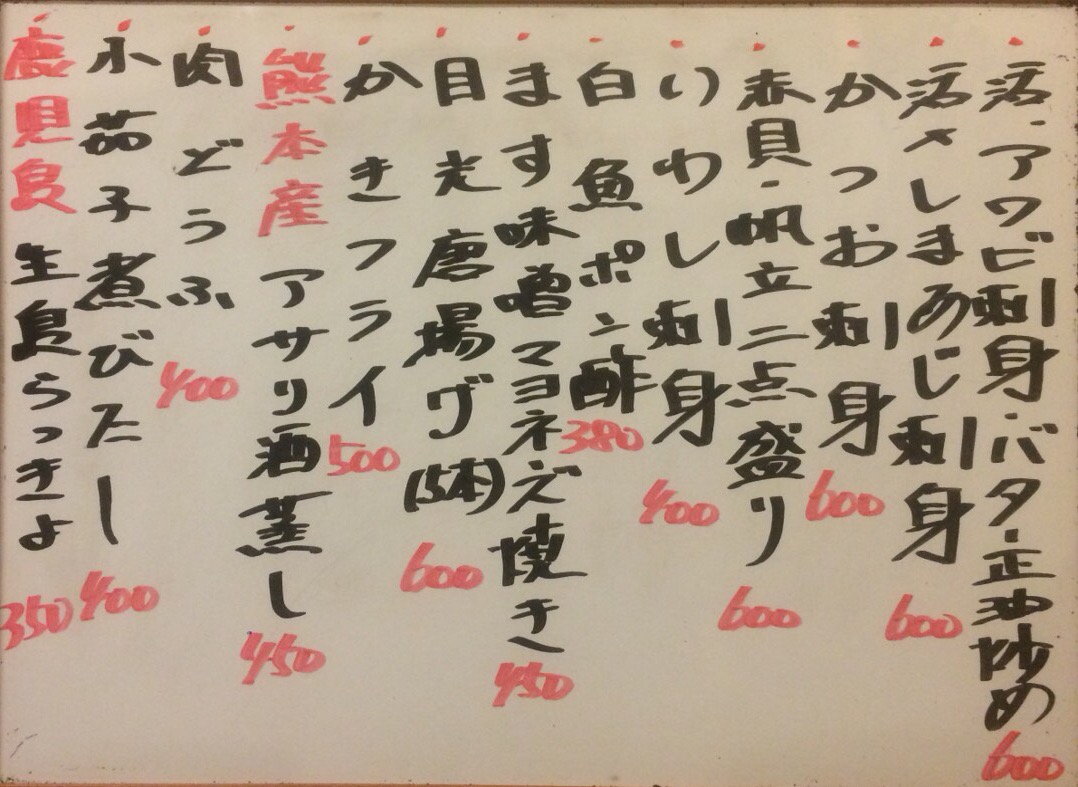 活・アワビ刺身・バター正油炒め 600
活〆しまあじ刺身 600
かつお刺身 600
赤貝・帆立二点盛り 600
いわし刺身 400
白魚ポン酢 380
ます味噌マヨネズ焼き 450
目光唐揚げ(5本) 600
かきフライ 500
熊本産アサリ酒蒸し 450
肉どうふ 400
小茄子煮びたし 400
鹿児島生島らっきょ 350